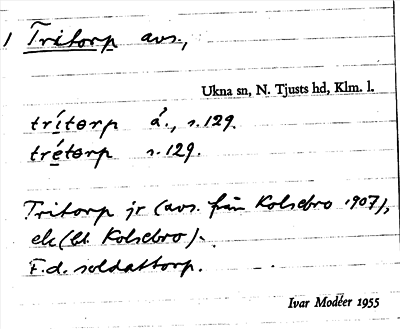 1 Tritorp avs.,
Ukna sn, N. Tjusts hd, Klm. l.
trítɵrp å., s. 129.
trétɵrp s. 129.
Tritorp jr (avs. från Kolsebro 1907),
ek (bl. Kolsebro).
F.d. soldattorp.
Ivar Modéer 1955